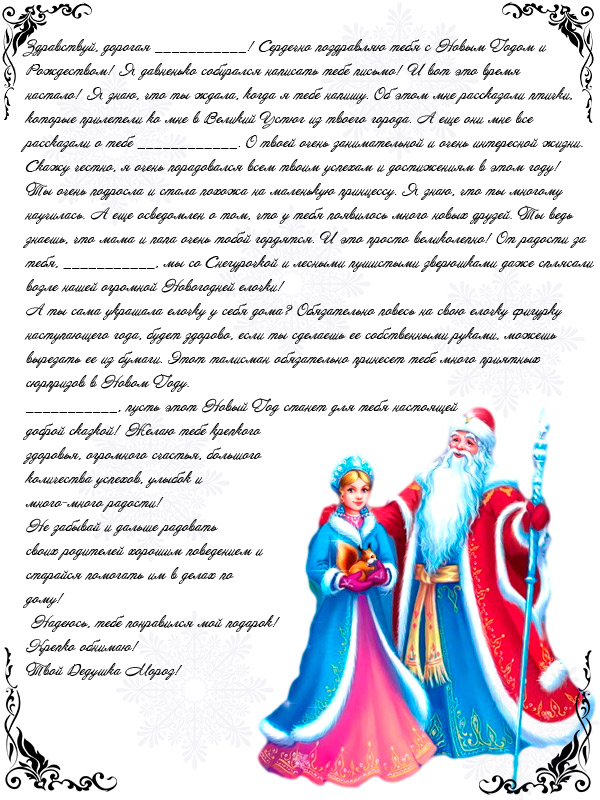 Здравствуй, дорогая ____________! Сердечно поздравляю тебя с Новым Годом и
Рождеством! Я давненько собирался написать тебе письмо! И вот это время
настало! Я знаю, что ты ждала, когда я тебе напишу. Об этом мне рассказали птички,
которые прилетели ко мне в Великий Устюг из твоего города. А еще они мне все
рассказали о тебе _____________. О твоей очень занимательной и очень интересной жизни.
Скажу честно, я очень порадовался всем твоим успехам и достижениям в этом году!
Ты очень подросла и стала похожа на маленькую принцессу. Я знаю, что ты многому
научилась. А еще осведомлен о том, что у тебя появилось много новых друзей. Ты ведь
знаешь, что мама и папа очень тобой гордятся. И это просто великолепно! От радости за
тебя, ____________, мы со Снегурочкой и лесными пушистыми зверюшками даже сплясали
возле нашей огромной Новогодней елочки!
А ты сама украшала елочку у себя дома? Обязательно повесь на свою елочку фигурку
наступающего года, будет здорово, если ты сделаешь ее собственными руками, можешь
вырезать ее из бумаги. Этот талисман обязательно принесет тебе много приятных
сюрпризов в Новом Году.
____________, пусть этот Новый Год станет для тебя настоящей
доброй сказкой! Желаю тебе крепкого
здоровья, огромного счастья, большого
количества успехов, улыбок и
много-много радости!
Не забывай и дальше радовать
своих родителей хорошим поведением и
старайся помогать им в делах по
дому!
Надеюсь, тебе понравился мой подарок!
Крепко обнимаю!
Твой Дедушка Мороз!